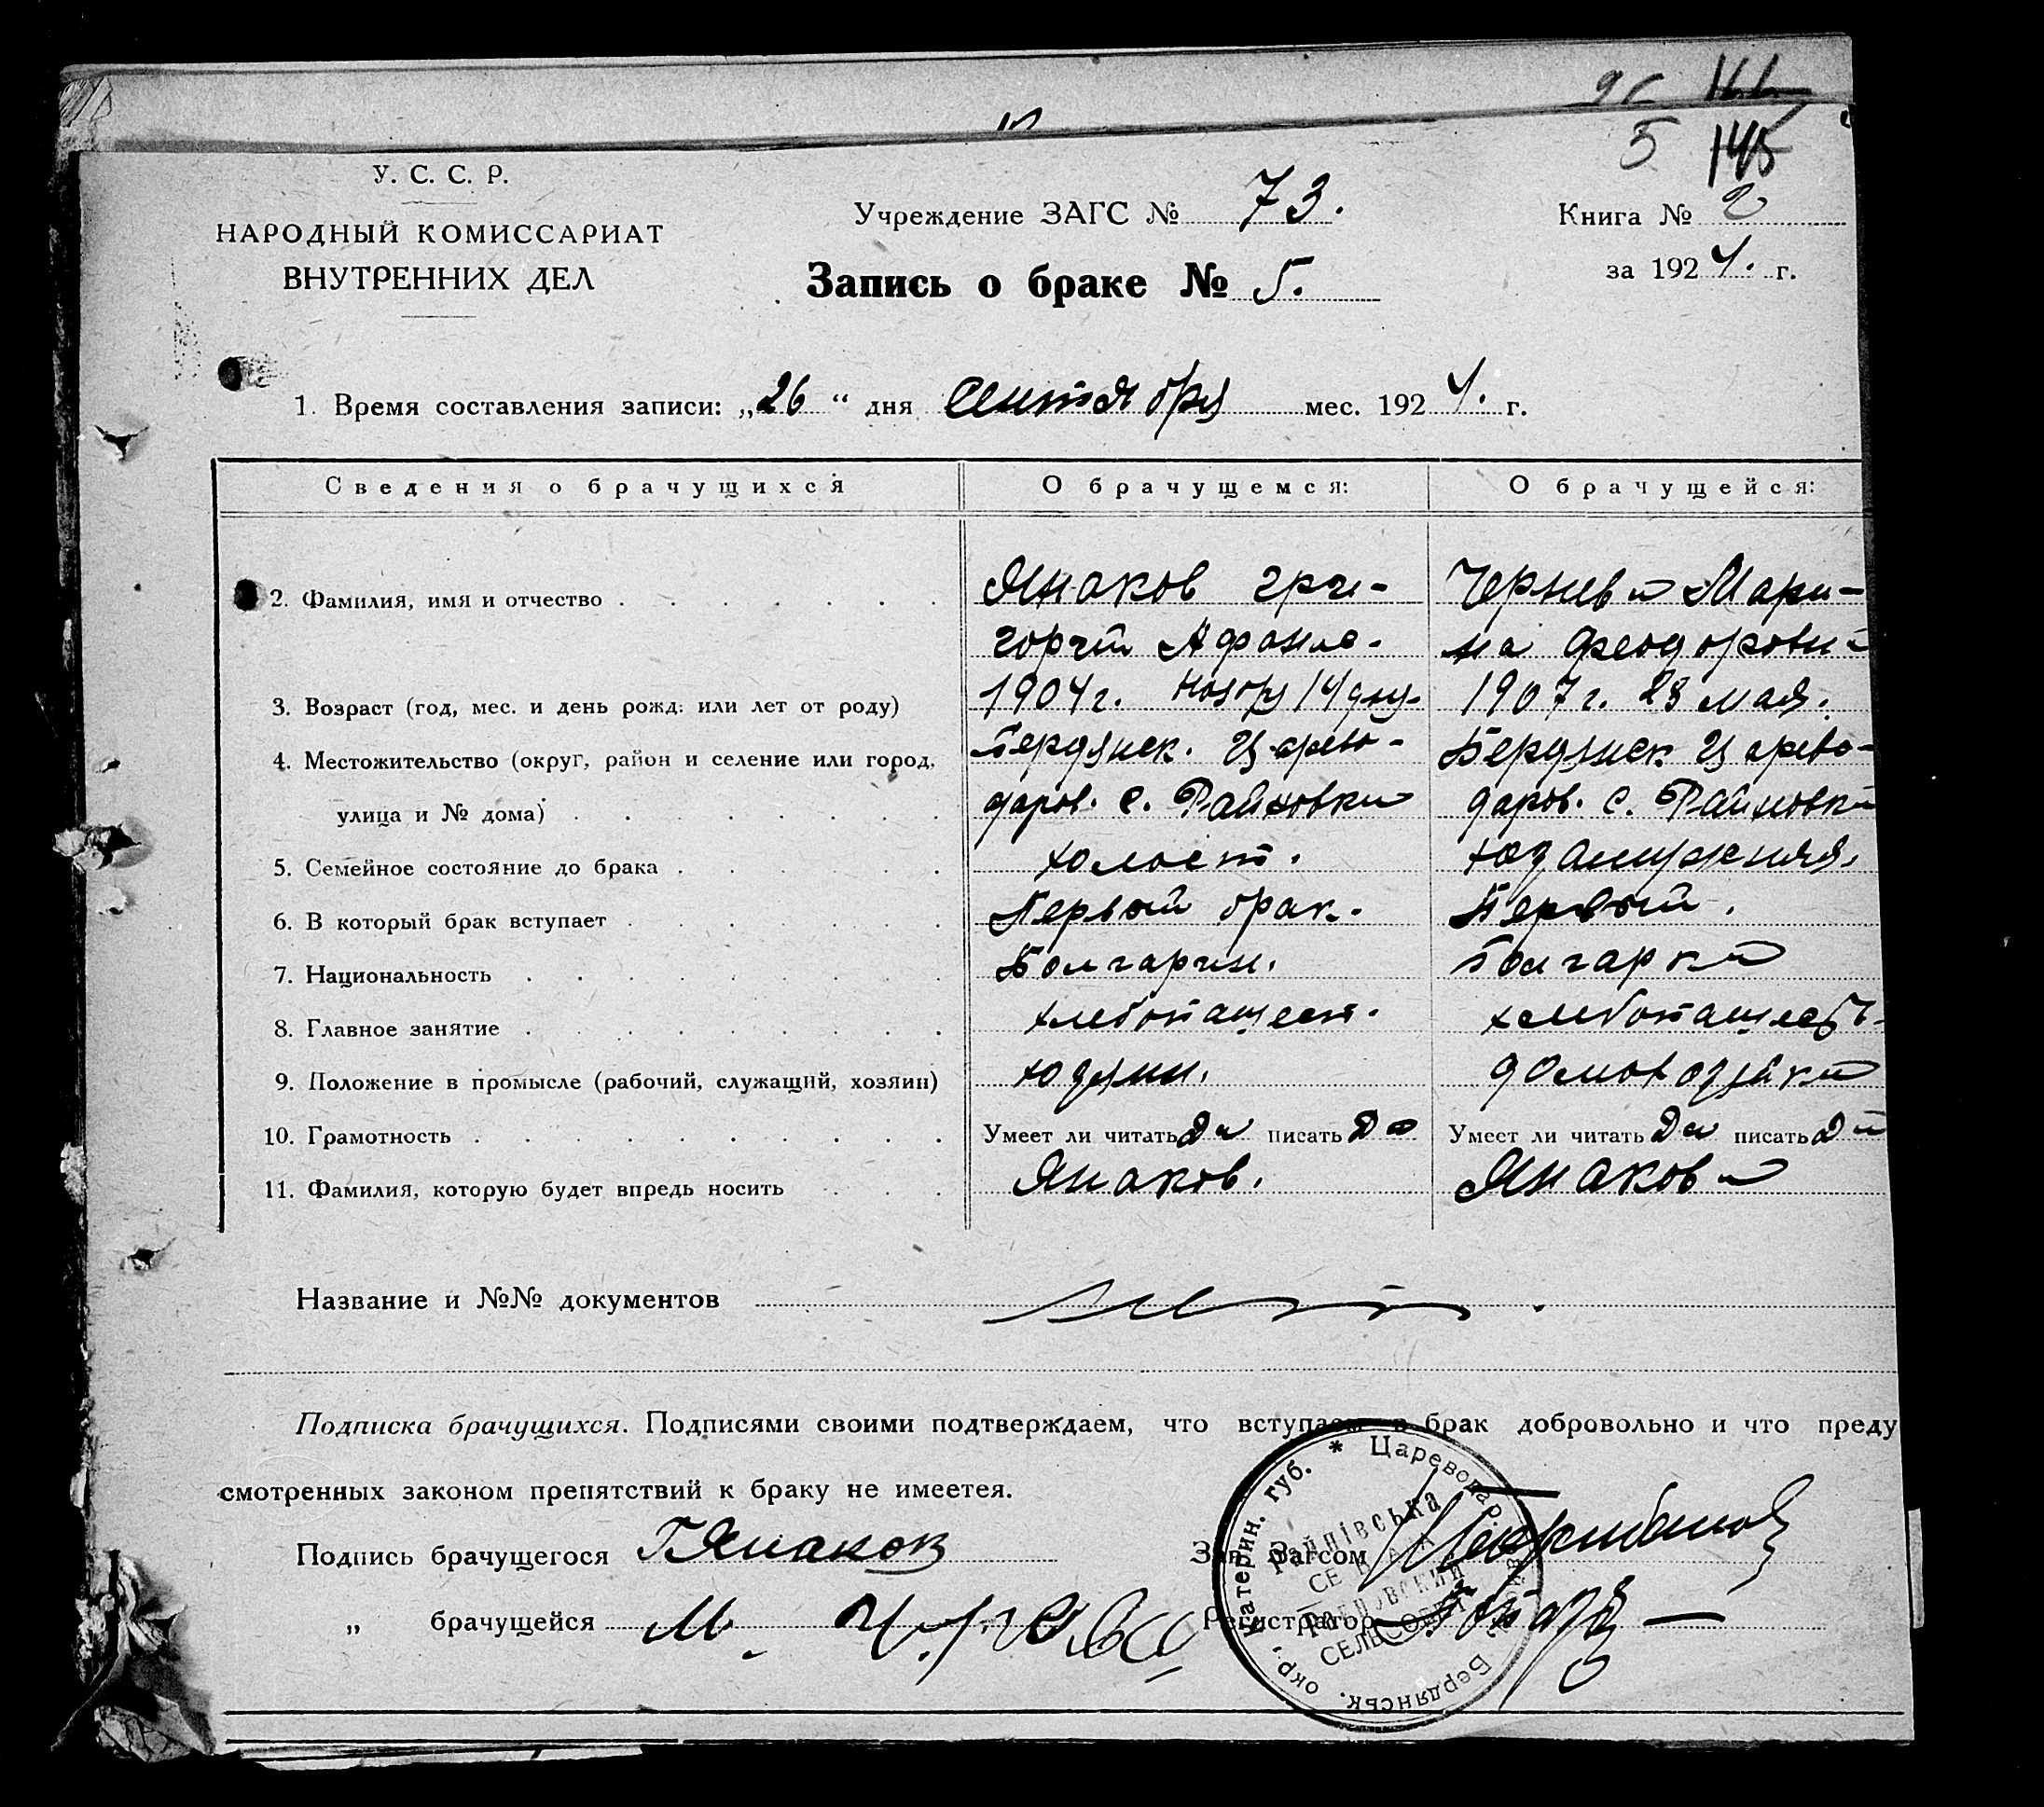 5 145
У. С. С. Р.
НАРОДНЫЙ КОМИССАРИАТ
ВНУТРЕННИХ ДЕЛ
Учреждение ЗАГС № 73.
Запись о браке № 5.
Книга № 2
за 1924. г.
1. Время составления записи: „26“ дня сентября мес. 1924. г.
Сведения о брачущихся О брачущемся: О брачущейся:
2. Фамилия, имя и отчество Янаков Гри- Чернева Мари-
горий Афанас. на Феодоровна
3. Возраст (год, мес. и день рожд. или лет от роду) 1904 г. Ноябр 14 дня. 1907 г. 28 мая.
4. Местожительство (округ, район и селение или город, Бердянск. Царево- Бердянск Царево-
улица и № дома) даров. с. Райновка даров. с. Райновка
5. Семейное состояние до брака холост.
6. В который брак вступает Первый брак. Первый.
7. Национальность Болгарин. Болгарка
8. Главное занятие хлебопашест. хлебопашест.
9. Положение в промысле (рабочий, служащий, хозяин) хозяин. домохозяйка
10. Грамотность Умеет ли читать Да писать Да Умеет ли читать Да писать Да
11. Фамилия, которую будет впредь носить Янаков. Янакова
Название и №№ документов нет.
Подписка брачущихся. Подписями своими подтверждаем, что вступаем в брак добровольно и что преду
смотренных законом препятствий к браку не имеетея.
Подпись брачущегося Г Янаков Зав. Загсом
„ брачущейся М. Регистратор
Катерин. губ. * Цареводар. Бердянськ. окр.
СЕЛЬСОВЕТ